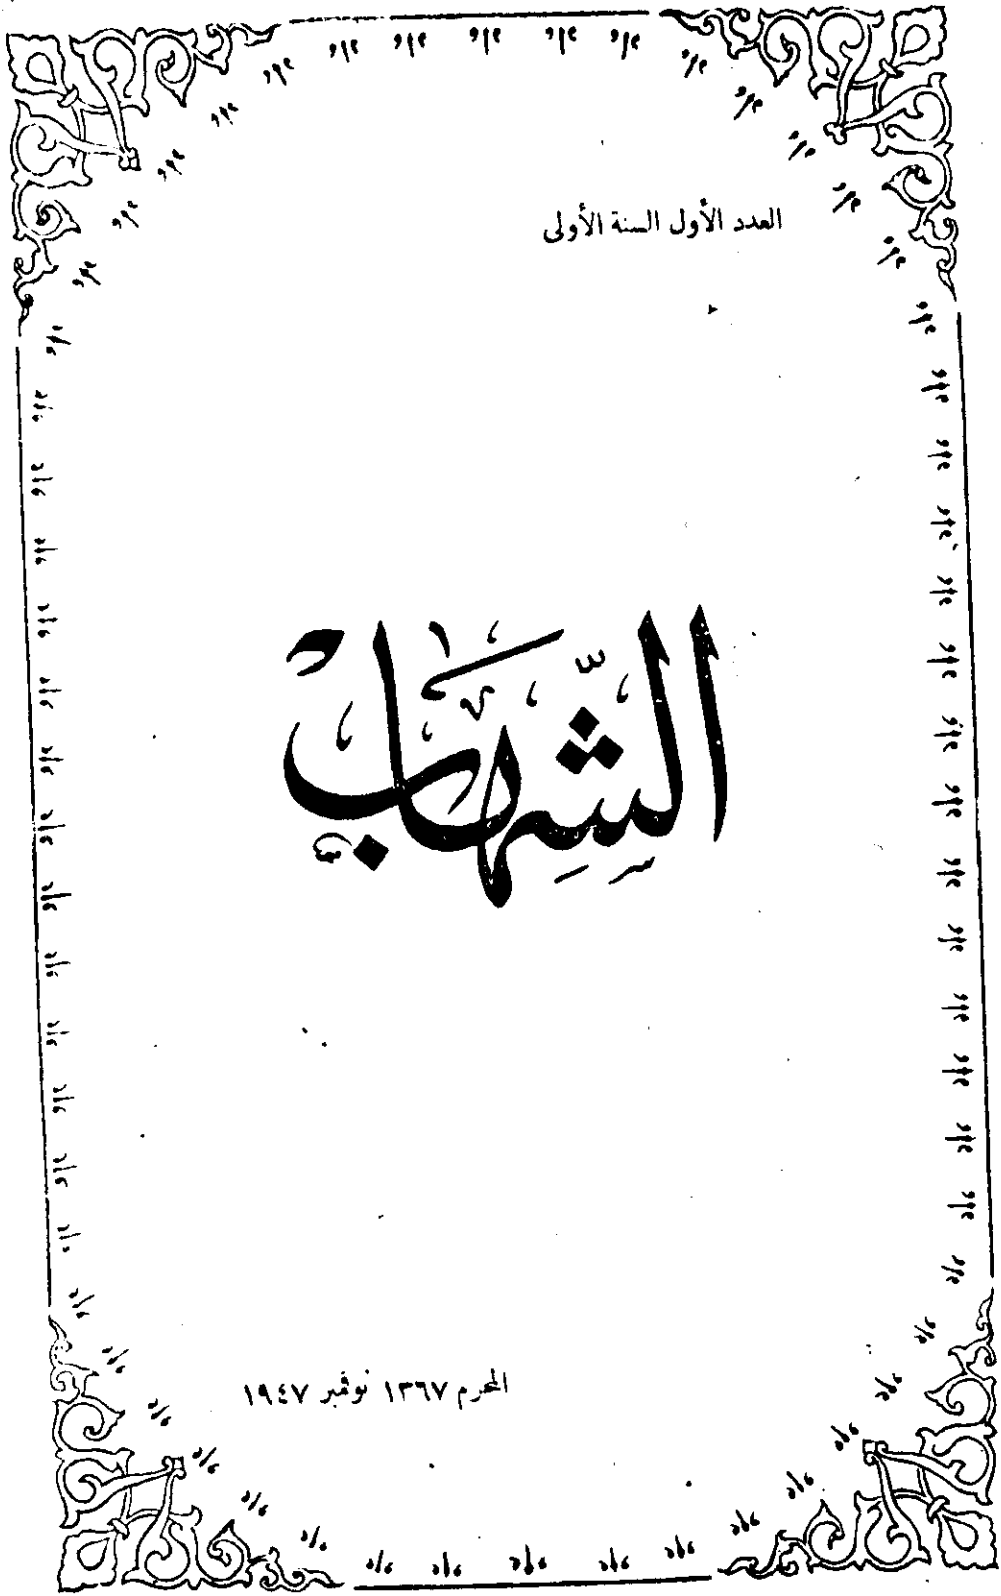 العدد الأول السنة الأولى
الشِّهَاب
المحرم ١٣٦٧ نوفمبر ١٩٤٧